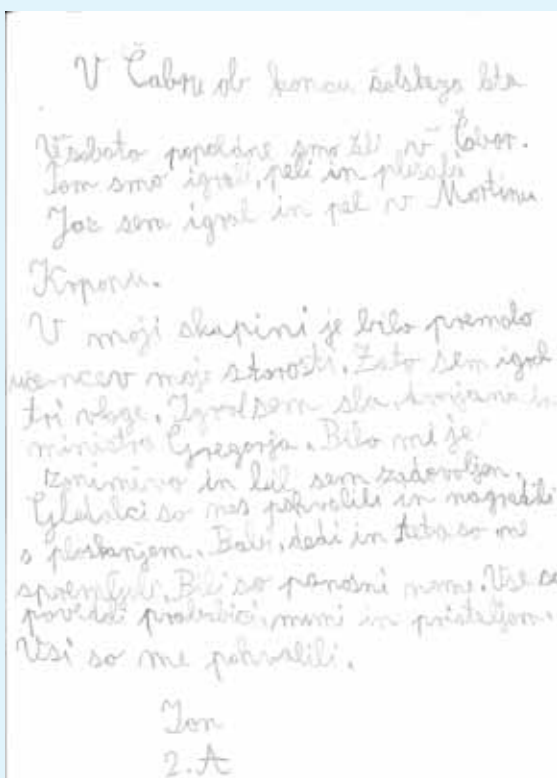 V Čabru ob koncu šolskega leta
V soboto popoldne smo šli v Čabar.
Tam smo igrali, peli in plesali.
Jaz sem igral in pel v Martinu
Krpanu.
V moji skupini je bilo premalo
učencev moje starosti. Zato sem igral
tri vloge. Igral sem sla, in
ministra Gregorja. Bilo mi je
zanimivo in bil sem zadovoljen.
Gledalci so nas pohvalili in nagradili
s ploskanjem. Babi, dedi in teta so me
spremljali. Bili so ponosni name. Vse so
povedali prababici, mami in prijateljem.
Vsi so me pohvalili.
Jon
2. A